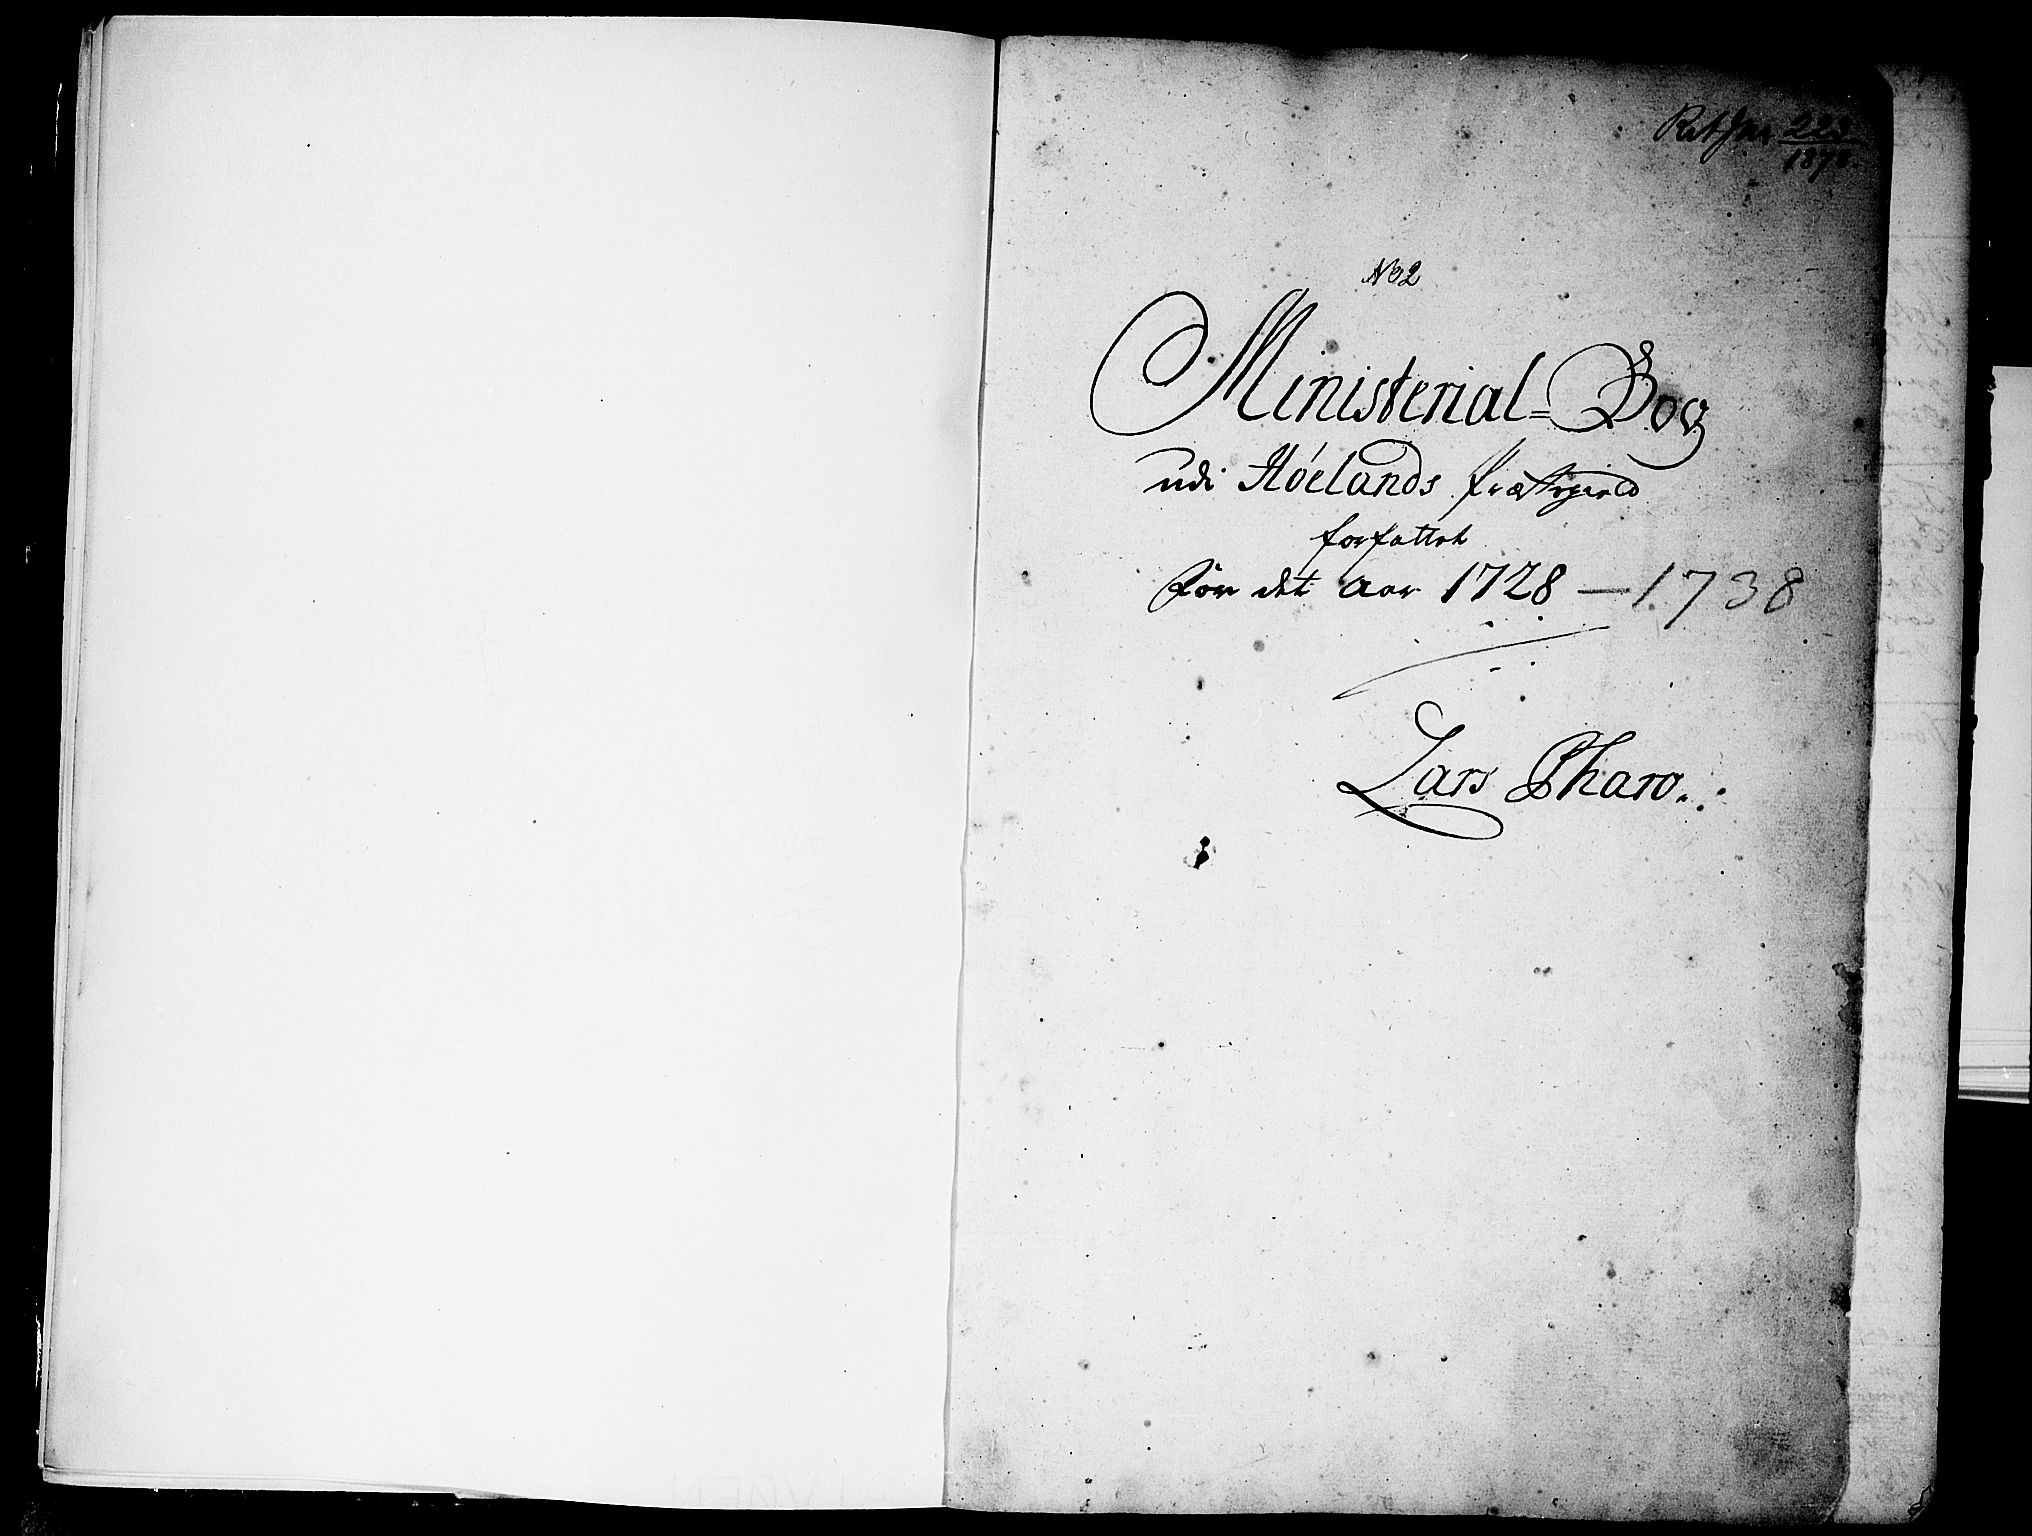 223
1878.
No 2
Ministerial=Bog
udi Høelands Præstegield
forfattet
for det aar 1728 — 1738
Lars Pharo.